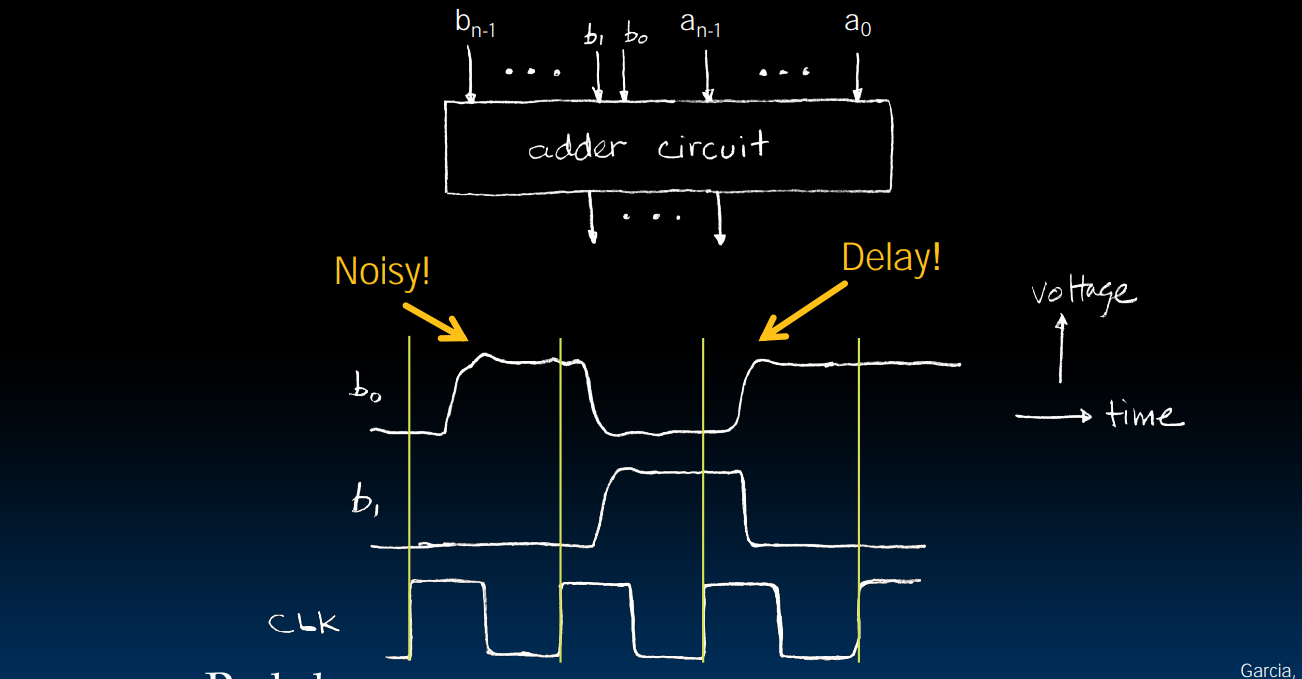 bn-1 b1 b0 an-1 a0
adder circuit
Noisy!
Delay!
voltage
b0
time
b1
CLK
Garcia,